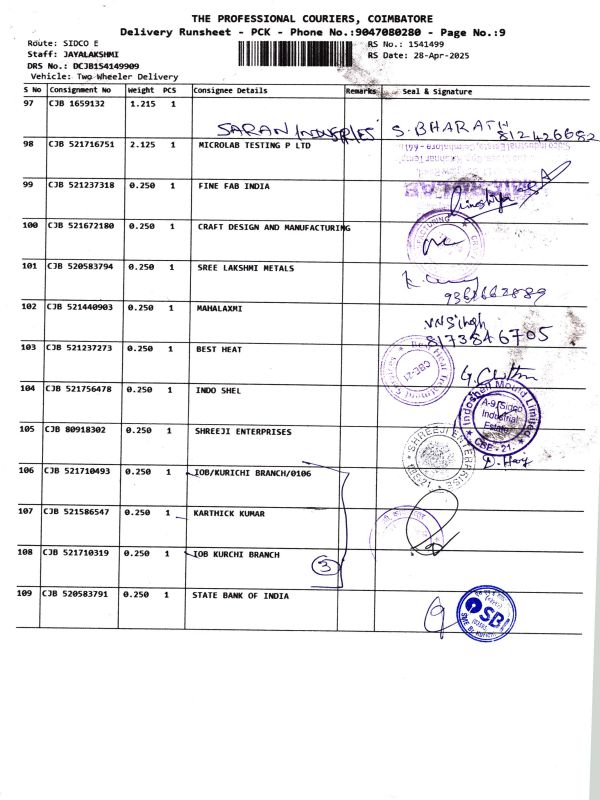 THE PROFESSIONAL COURIERS, COIMBATORE
Delivery Runsheet - PCK - Phone No.:9047080280 - Page No.:9
Route: SIDCO E
RS No.: 1541499
Staff: JAYALAKSHMI
RS Date: 28-Apr-2025
DRS No.: DCJB154149909
Vehicle: Two Wheeler Delivery
S No Consignment No Weight PCS Consignee Details Remarks Seal & Signature
97 CJB 1659132 1.215 1
SARAN INDUSTRIES S. BHARATH
98 CJB 521716751 2.125 1 MICROLAB TESTING P LTD
99 CJB 521237318 0.250 1 FINE FAB INDIA
100 CJB 521672180 0.250 1 CRAFT DESIGN AND MANUFACTURING
101 CJB 520583794 0.250 1 SREE LAKSHMI METALS
9361662889
102 CJB 521440903 0.250 1 MAHALAXMI
VN Singh
8173846705
103 CJB 521237273 0.250 1 BEST HEAT
CBE-21
104 CJB 521756478 0.250 1 INDO SHEL
Indoshell Mould Limited
A-9, Sidco
Industrial
Estate
CBE - 21.
105 CJB 80918302 0.250 1 SHREEJI ENTERPRISES
SHREEJI ENTERPRISES
106 CJB 521710493 0.250 1 IOB/KURICHI BRANCH/0106
107 CJB 521586547 0.250 1 KARTHICK KUMAR
108 CJB 521710319 0.250 1 IOB KURCHI BRANCH
3
109 CJB 520583791 0.250 1 STATE BANK OF INDIA
SB